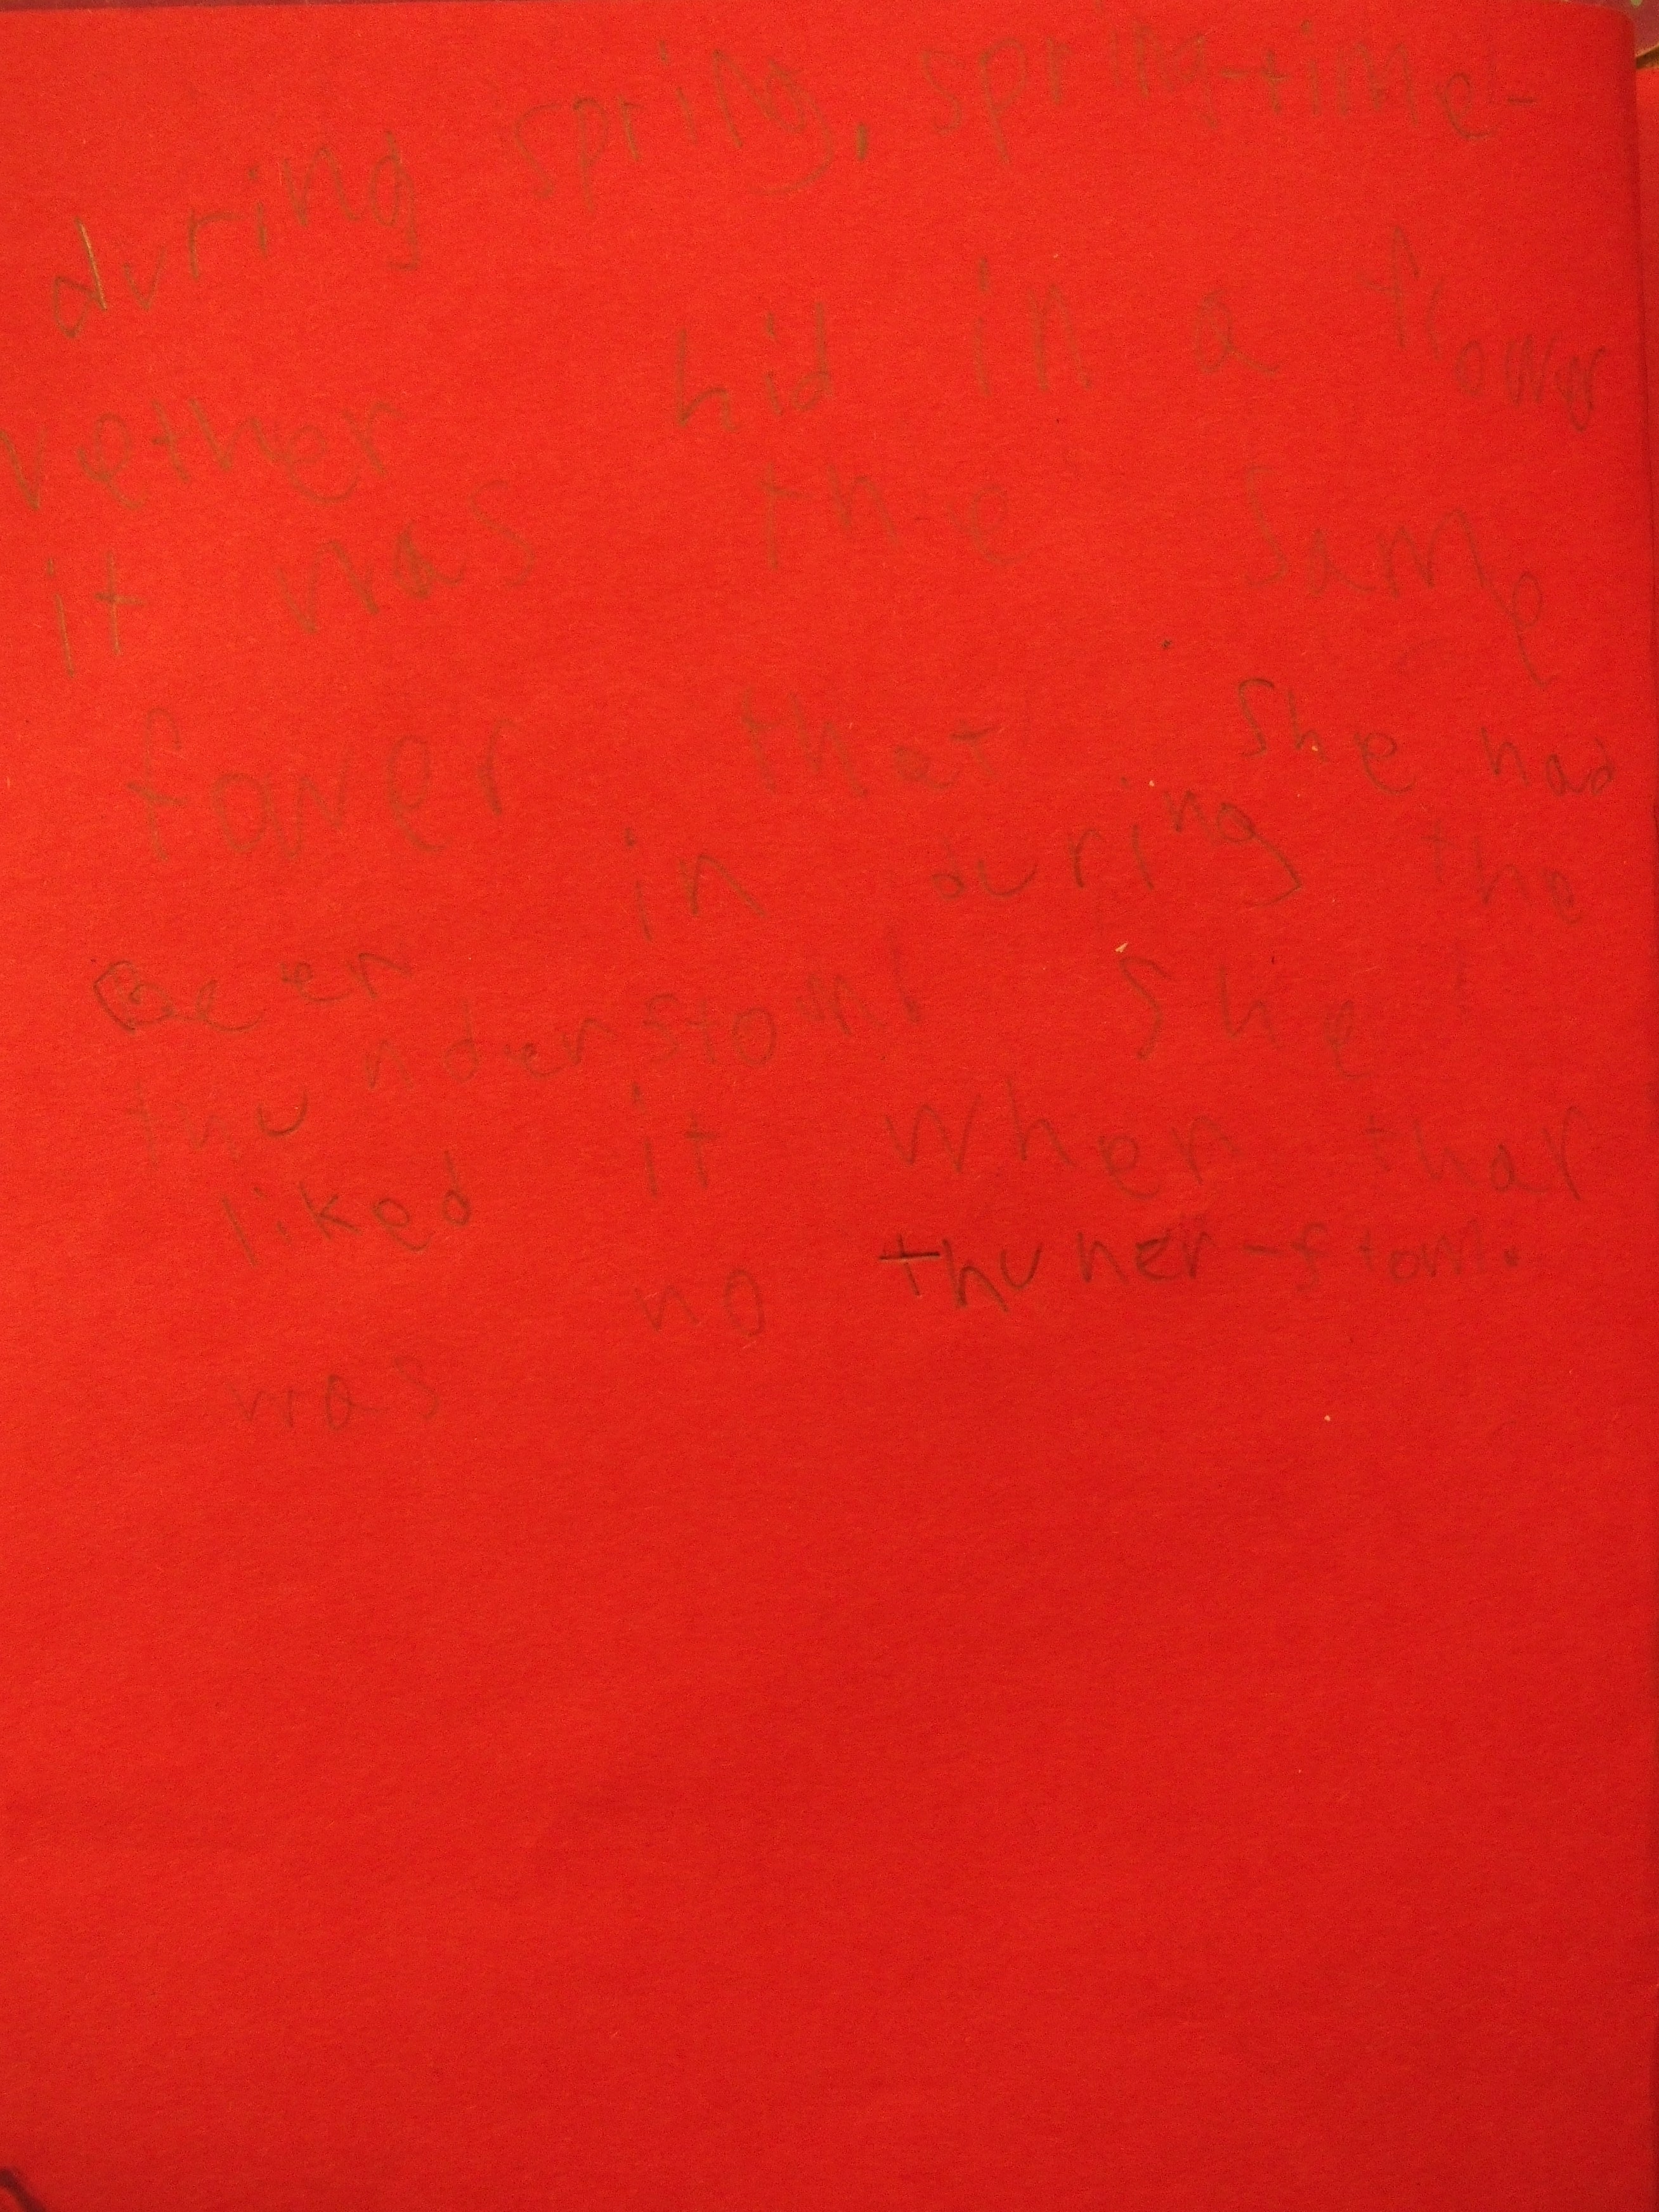 during spring, spring-time-
vether hid in a flower
it was the same
fower that she had
Been in during the
thunderstom! She
liked it when thar
was no thuner-stom.